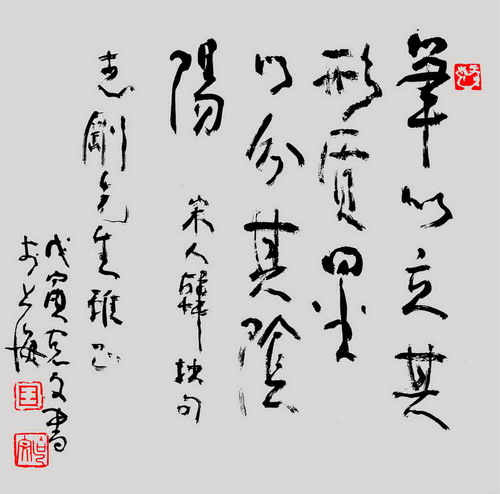 筆以立其
形質墨
以分其陰
陽
宋人韓拙句
志剛先生雅正
戊寅文書
於上海